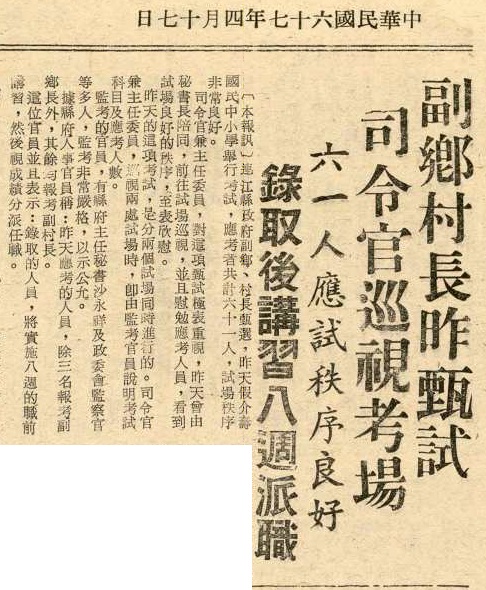 中華民國六十七年四月十七日
副鄉村長昨甄試
司令官巡視考場
六一人應試秩序良好
錄取後講習八週派職
〔本報訊〕連江縣政府副鄉、村長甄選，昨天假介壽
國民中小學舉行考試，應考者共計六十一人，試場秩序
非常良好。
司令官兼主任委員，對這項甄試極表重視，昨天曾由
秘書長陪同，前往試場巡視，並且慰勉應考人員，看到
試場良好的秩序，至表欣慰。
昨天的這項考試，是分兩個試場同時進行的。司令官
兼主任委員，巡視兩處試場時，卽由監考官員說明考試
科目及應考人數。
監考的官員，有縣府主任秘書沙永祥及政委會監察官
等多人，監考非常嚴格，以示公允。
據縣府人事官員稱：昨天應考的人員，除三名報考副
鄉長外，其餘均報考副村長。
這位官員並且表示：錄取的人員，將實施八週的職前
講習，然後視成績分派任職。